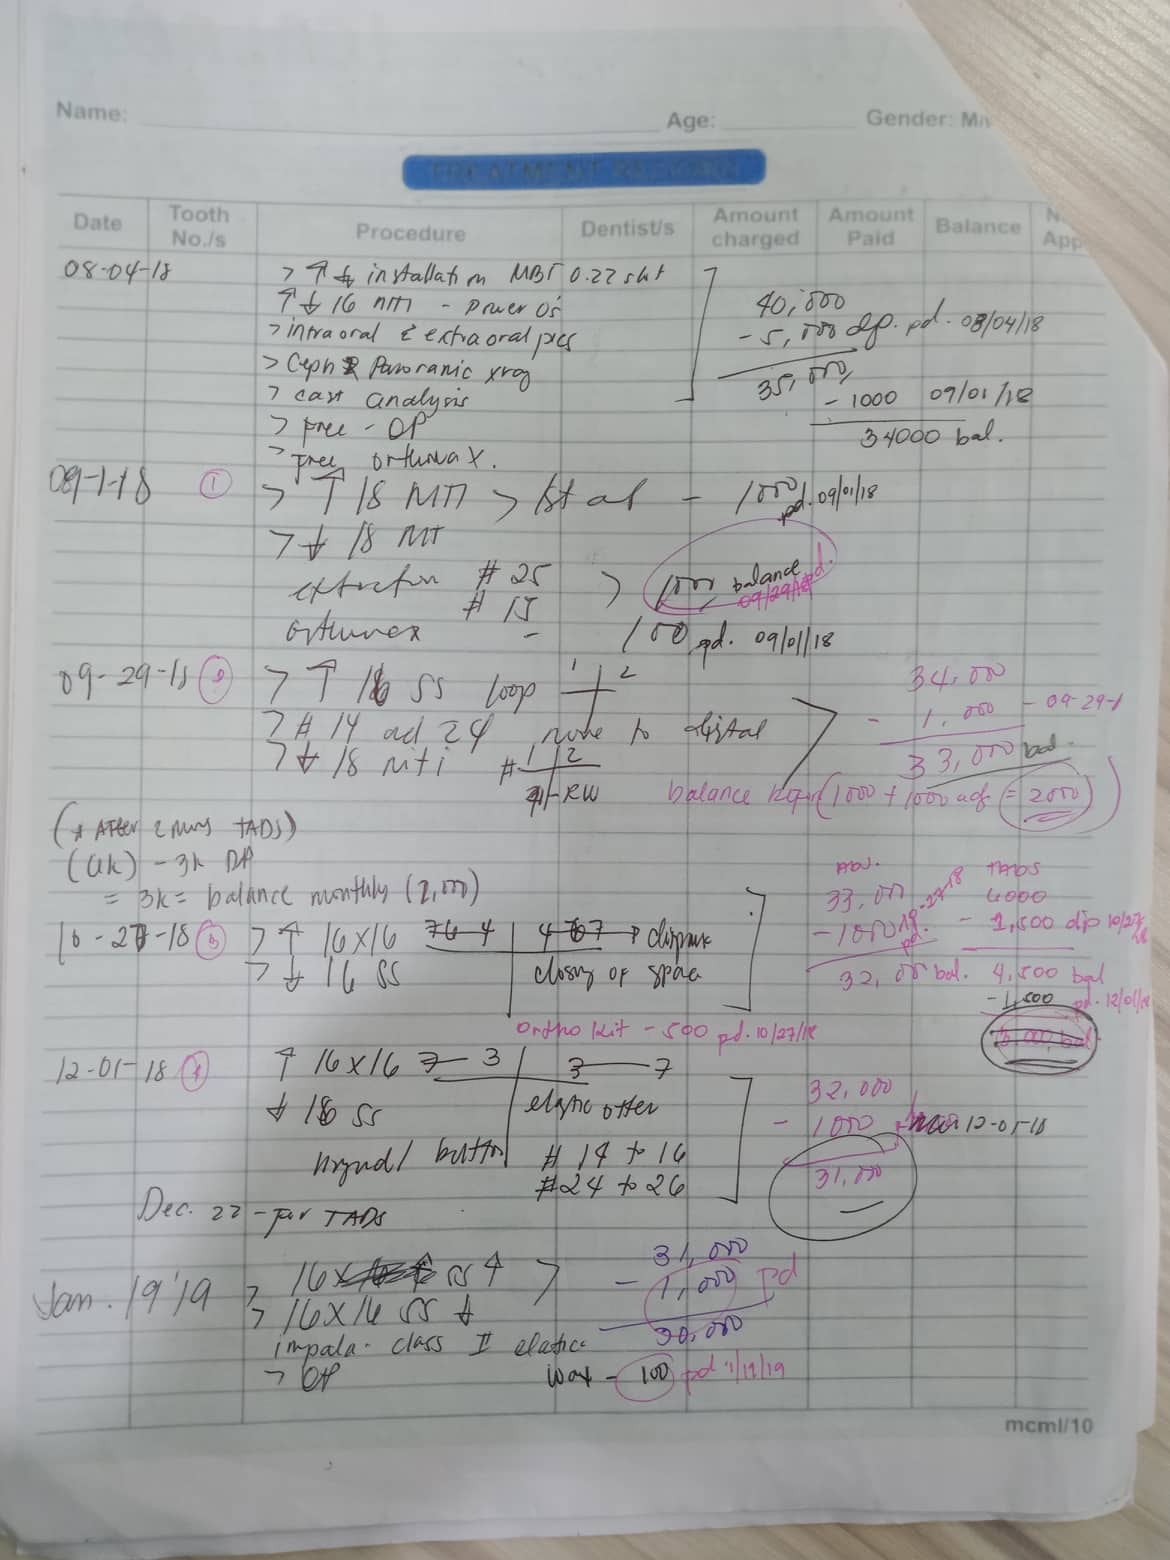 Name: Age: Gender: M/
TREATMENT RECORD
Date Tooth No./s Procedure Dentist/s Amount charged Amount Paid Balance
08-04-18 > ↑ ↓ installation MBT 0.22 slot
↑ ↓ 16 niti - power O's 40,000
> intraoral & extraoral pics - 5,000 dp. pd. 08/04/18
> Ceph & Panoramic xray 35,000
> cast analysis - 1000 09/01/18
> free - OP 34000 bal.
> free orthowax.
09-1-18 ① > ↑ 18 niti > 1st adj - 1000 pd. 09/01/18
> ↓ 18 niti
extraction # 25 > 1000 balance pd. 09/29/18
# 15
orthowax - 100 pd. 09/01/18
09-29-18 > ↑ 16 ss loop 1 2 34,000
> # 14 and 24 move to distal - 1,000 - 09-29-1
> ↓ 18 niti # 1 2 33,000 bal.
RW balance (1000 + 1000 adj = 2000)
(* After 2 TADS)
(6k) - 3k DP
= 3k = balance monthly (2,000)
ADJ. TADS
33,000 6000
10-27-18 ③ > ↑ 16x16 76 4 4 67 - 1000 pd. - 1,500 dp 10/27/18
> ↓ 16 ss closing of space 32,000 bal. 4,500 bal
- 1,500 pd. 12/01/18
Ortho kit - 500 pd. 10/27/18 3,000 bal.
12-01-18 ④ ↑ 16x16 7 3 3 7 32,000
↓ 18 ss elastic - 1000 12-01-18
lingual button # 14 to 16 31,000
# 24 to 26
Dec. 22 - for TADS
Jan. 19 '19 > 16x ss ↑ > 31,000
> 16x16 ss ↓ - 1,000 pd
impala - class II elastics 30,000
> OP wax - 100 pd 1/19/19
mcml/10